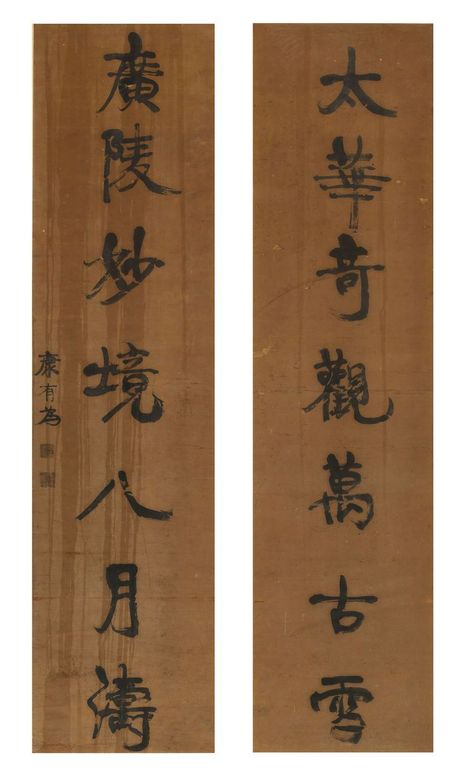 太華奇觀萬古雪
廣陵妙境八月濤
康有為